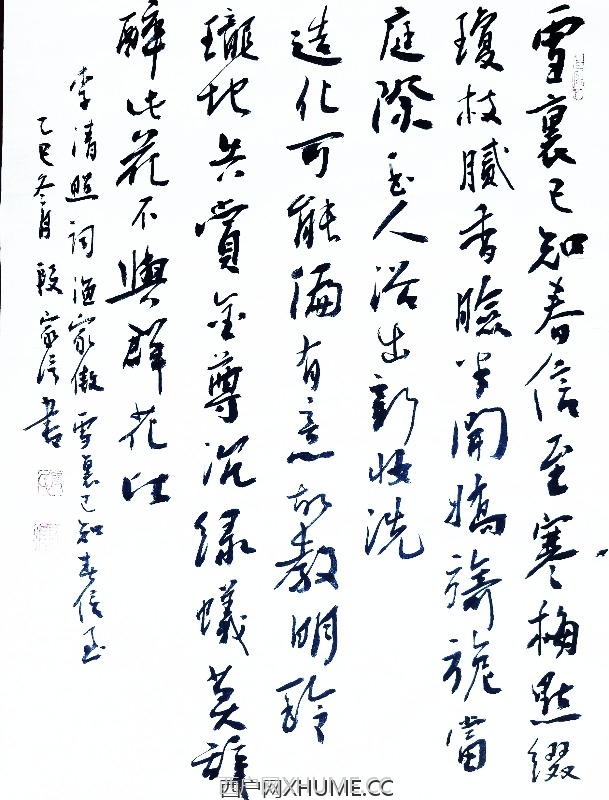 雪裏已知春信至寒梅點綴
瓊枝膩香臉半開嬌旖旎當
庭際玉人浴出新妝洗
造化可能偏有意故教明玲
瓏地共賞金尊沉綠蟻莫辭
醉此花不與群花比
李清照詞漁家傲雪裏已知春信至
乙巳冬月家信書
西户网XHUME.CC